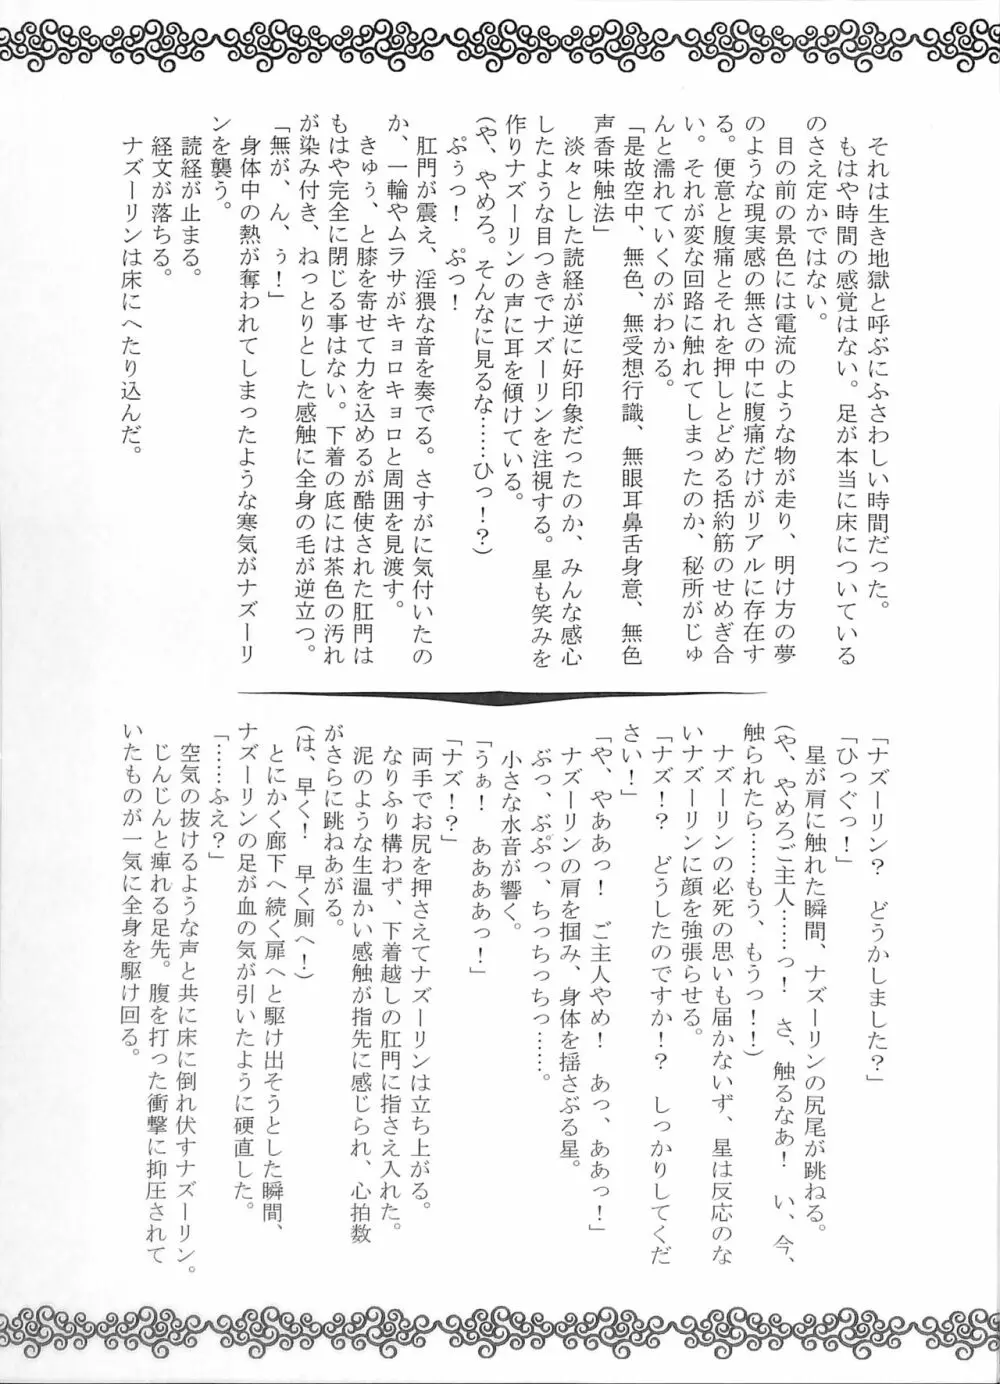 それは生き地獄と呼ぶにふさわしい時間だった。
もはや時間の感覚はない。足が本当に床についている
のさえ定かではない。
目の前の景色には電流のような物が走り、明け方の夢
のような現実感の無さの中に腹痛だけがリアルに存在す
る。便意と腹痛とそれを押しとどめる括約筋のせめぎ合
い。それが変な回路に触れてしまったのか、秘所がじゅ
んと濡れていくのがわかる。
「是故空中、無色、無受想行識、無眼耳鼻舌身意、無色
声香味触法」
淡々とした読経が逆に好印象だったのか、みんな感心
したような目つきでナズーリンを注視する。星も笑みを
作りナズーリンの声に耳を傾けている。
(や、やめろ。そんなに見るな……ひっ!?)
ぷぅっ！　ぷっ！
肛門が震え、淫猥な音を奏でる。さすがに気付いたの
か、一輪やムラサがキョロキョロと周囲を見渡す。
きゅぅ、と膝を寄せて力を込めるが酷使された肛門は
もはや完全に閉じる事はない。下着の底には茶色の汚れ
が染み付き、ねっとりとした感触に全身の毛が逆立つ。
「無が、ん、ぅ！」
身体中の熱が奪われてしまったような寒気がナズーリ
ンを襲う。
読経が止まる。
経文が落ちる。
ナズーリンは床にへたり込んだ。
「ナズーリン？　どうかしました？」
「ひっぐっ！」
星が肩に触れた瞬間、ナズーリンの尻尾が跳ねる。
(や、やめろご主人……っ！　さ、触るなあ！　い、今、
触られたら……もう、もうっ！！)
ナズーリンの必死の思いも届かないず、星は反応のな
いナズーリンに顔を強張らせる。
「ナズ！？　どうしたのですか！？　しっかりしてくだ
さい！」
「や、やああっ！　ご主人やめ！　あっ、ああっ！」
ナズーリンの肩を掴み、身体を揺さぶる星。
ぶっ、ぶぷっ、ちっちっちっ……。
小さな水音が響く。
「うぁ！　ああああっ！」
「ナズ！？」
両手でお尻を押さえてナズーリンは立ち上がる。
なりふり構わず、下着越しの肛門に指さえ入れた。
泥のような生温かい感触が指先に感じられ、心拍数
がさらに跳ねあがる。
(は、早く！　早く厠へ！)
とにかく廊下へ続く扉へと駆け出そうとした瞬間、
ナズーリンの足が血の気が引いたように硬直した。
「……ふえ？」
空気の抜けるような声と共に床に倒れ伏すナズーリン。
じんじんと痺れる足先。腹を打った衝撃に抑圧されて
いたものが一気に全身を駆け回る。